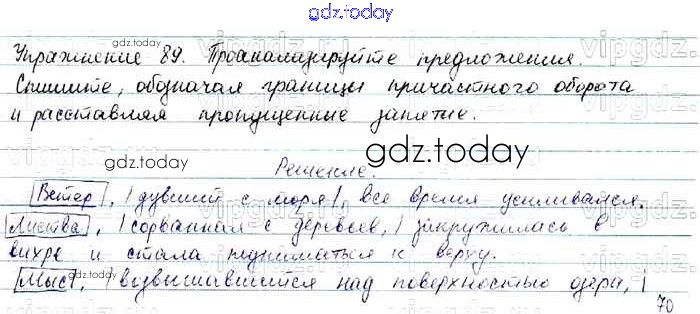 gdz.today
Упражнение 89. Проанализируйте предложения.
gdz.today
Спишите, обозначая границы причастного оборота
и расставляя пропущенные запятые.
gdz.today
gdz.today
Решение.
Ветер, |дувший с моря|, все время усиливался.
Листва, |сорванная с деревьев,| закружилась в
вихре и стала подниматься к верху.
gdz.today
Мыс, |возвышавшийся над поверхностью озера,|
70